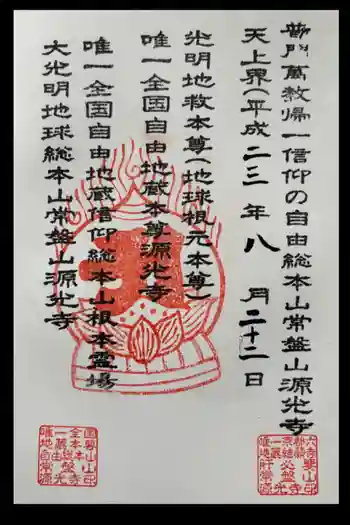 普門萬教帰一信仰の自由総本山常盤山源光寺
天上界(平成二三年八月二十二日
光明地救本尊(地球根元本尊)
唯一全国自由地蔵本尊源光寺
唯一全国自由地蔵信仰総本山根本霊場
大光明地球総本山常盤山源光寺